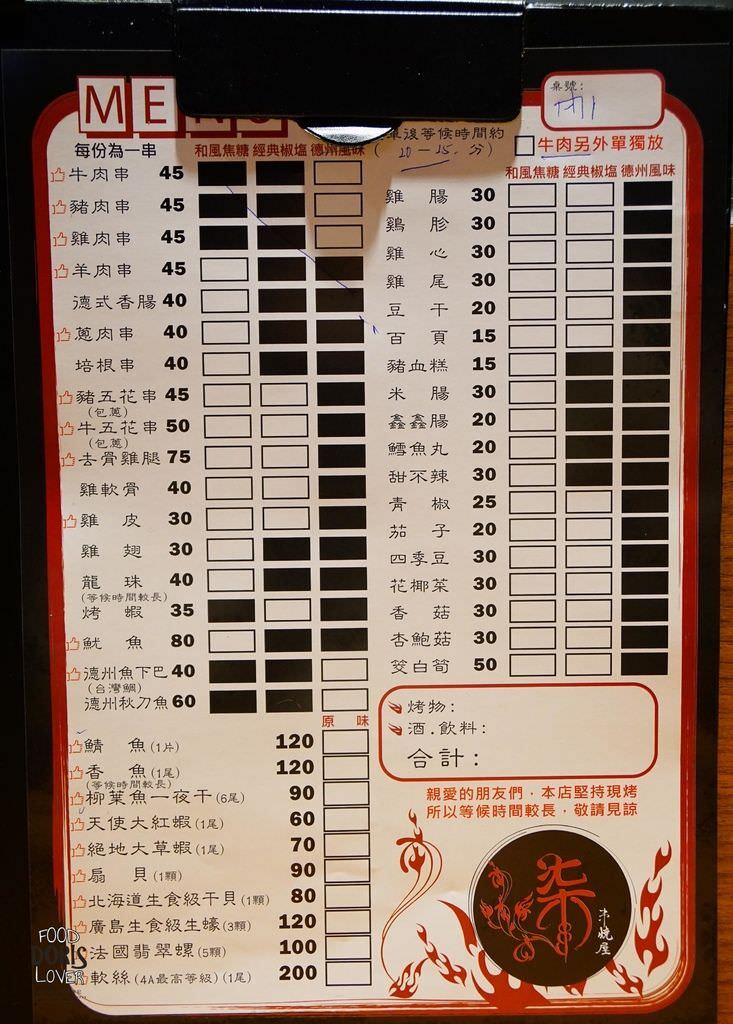 MENU
桌號:
單後等候時間約
(20-15.分)
牛肉另外單獨放
每份為一串
和風焦糖 經典椒塩 德州風味
牛肉串 45
豬肉串 45
雞肉串 45
羊肉串 45
德式香腸 40
蔥肉串 40
培根串 40
豬五花串 45
(包蔥)
牛五花串 50
(包蔥)
去骨雞腿 75
雞軟骨 40
雞皮 30
雞翅 30
龍珠 40
(等候時間較長)
烤蝦 35
魷魚 80
德州魚下巴 40
(台灣鯛)
德州秋刀魚 60
原味
鯖魚(1片) 120
香魚(1尾) 120
(等候時間較長)
柳葉魚一夜干(6尾) 90
天使大紅蝦(1尾) 60
絕地大草蝦(1尾) 70
扇貝(1顆) 90
北海道生食級干貝(1顆) 80
廣島生食級生蠔(3顆) 120
法國翡翠螺(5顆) 100
軟絲(4A最高等級)(1尾) 200
和風焦糖 經典椒塩 德州風味
雞腸 30
鷄胗 30
雞心 30
雞尾 30
豆干 20
百頁 15
豬血糕 15
米腸 30
鑫鑫腸 20
鱈魚丸 20
甜不辣 30
青椒 25
茄子 20
四季豆 30
花椰菜 30
香菇 30
杏鮑菇 30
筊白筍 50
烤物:
酒.飲料:
合計:
親愛的朋友們,本店堅持現烤
所以等候時間較長,敬請見諒
柒
串燒屋
FOOD
DORIS
LOVER